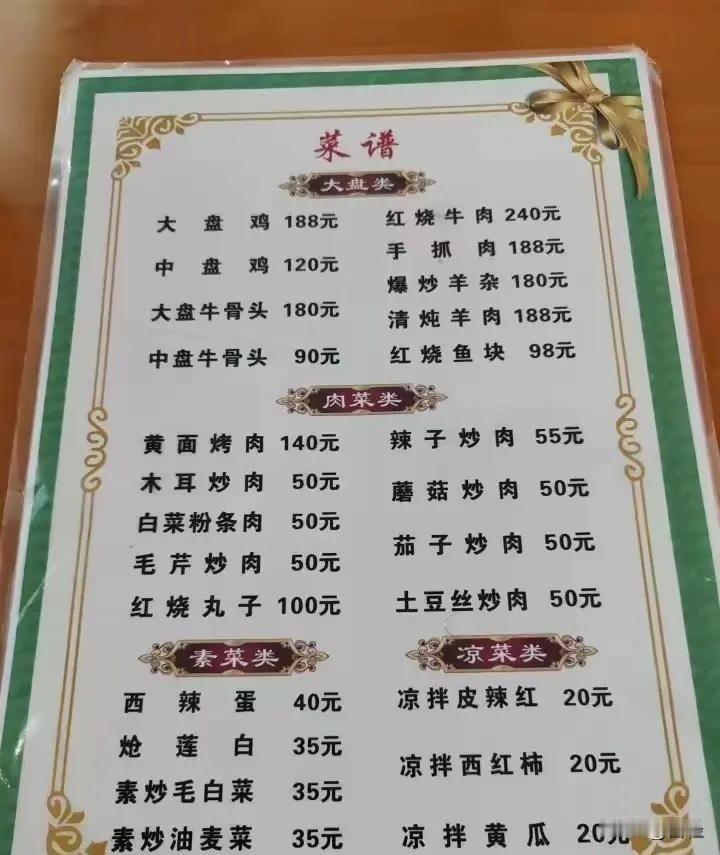 菜谱
大盘类
大盘鸡 188元
中盘鸡 120元
大盘牛骨头 180元
中盘牛骨头 90元
红烧牛肉 240元
手抓肉 188元
爆炒羊杂 180元
清炖羊肉 188元
红烧鱼块 98元
肉菜类
黄面烤肉 140元
木耳炒肉 50元
白菜粉条肉 50元
毛芹炒肉 50元
红烧丸子 100元
辣子炒肉 55元
蘑菇炒肉 50元
茄子炒肉 50元
土豆丝炒肉 50元
素菜类
西辣蛋 40元
炝莲白 35元
素炒毛白菜 35元
素炒油麦菜 35元
凉菜类
凉拌皮辣红 20元
凉拌西红柿 20元
凉拌黄瓜 20元